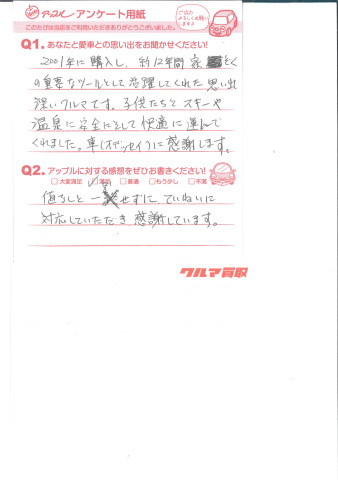 アップル アンケート用紙
このたびは当店をご利用いただきありがとうございました。
Q1. あなたと愛車との思い出をお聞かせください!
2001年に購入し、約12年間 家ぞく
の重要なツールとして活躍してくれた思い出
深いクルマです。子供たちとスキーや
温泉に安全にそして快適に運んで
くれました。車(オデッセイ)に感謝します。
Q2. アップルに対する感想をぜひお書きください!
□大変満足 □満足 □普通 □もう少し □不満
値ぶみを一切せずに、ていねいに
対応していただき感謝しています。
クルマ買取